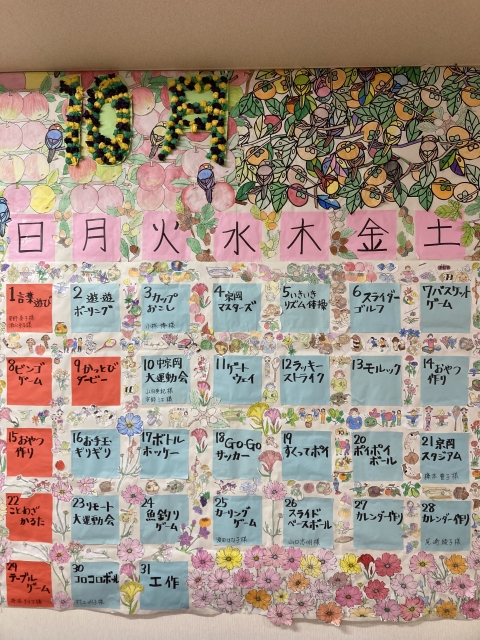 10月
日 月 火 水 木 金 土
1言葉
遊び
2 遊・遊
ボーリング
3カップ
おこし
4京岡
マスターズ
5いきいき
リズム体操
6スライダー
ゴルフ
7バスケット
ゲーム
8ビンゴ
ゲーム
9かっとび
ダービー
10京岡
大運動会
11ゲート
ウェイ
12ラッキー
ストライク
13モルック
14おやつ
作り
15おやつ
作り
16お手玉
ギリギリ
17ボトル
ホッケー
18GO-GO
サッカー
19
すくってポイ
20
ポイポイ
ボール
21京岡
スタジアム
22
ことわざ
かるた
23リモート
大運動会
24
魚釣り
ゲーム
25
カーリング
ゲーム
26
スライド
ベースボール
27
カレンダー作り
28
カレンダー作り
29
テーブル
ゲーム
30
コロコロボール
31
工作